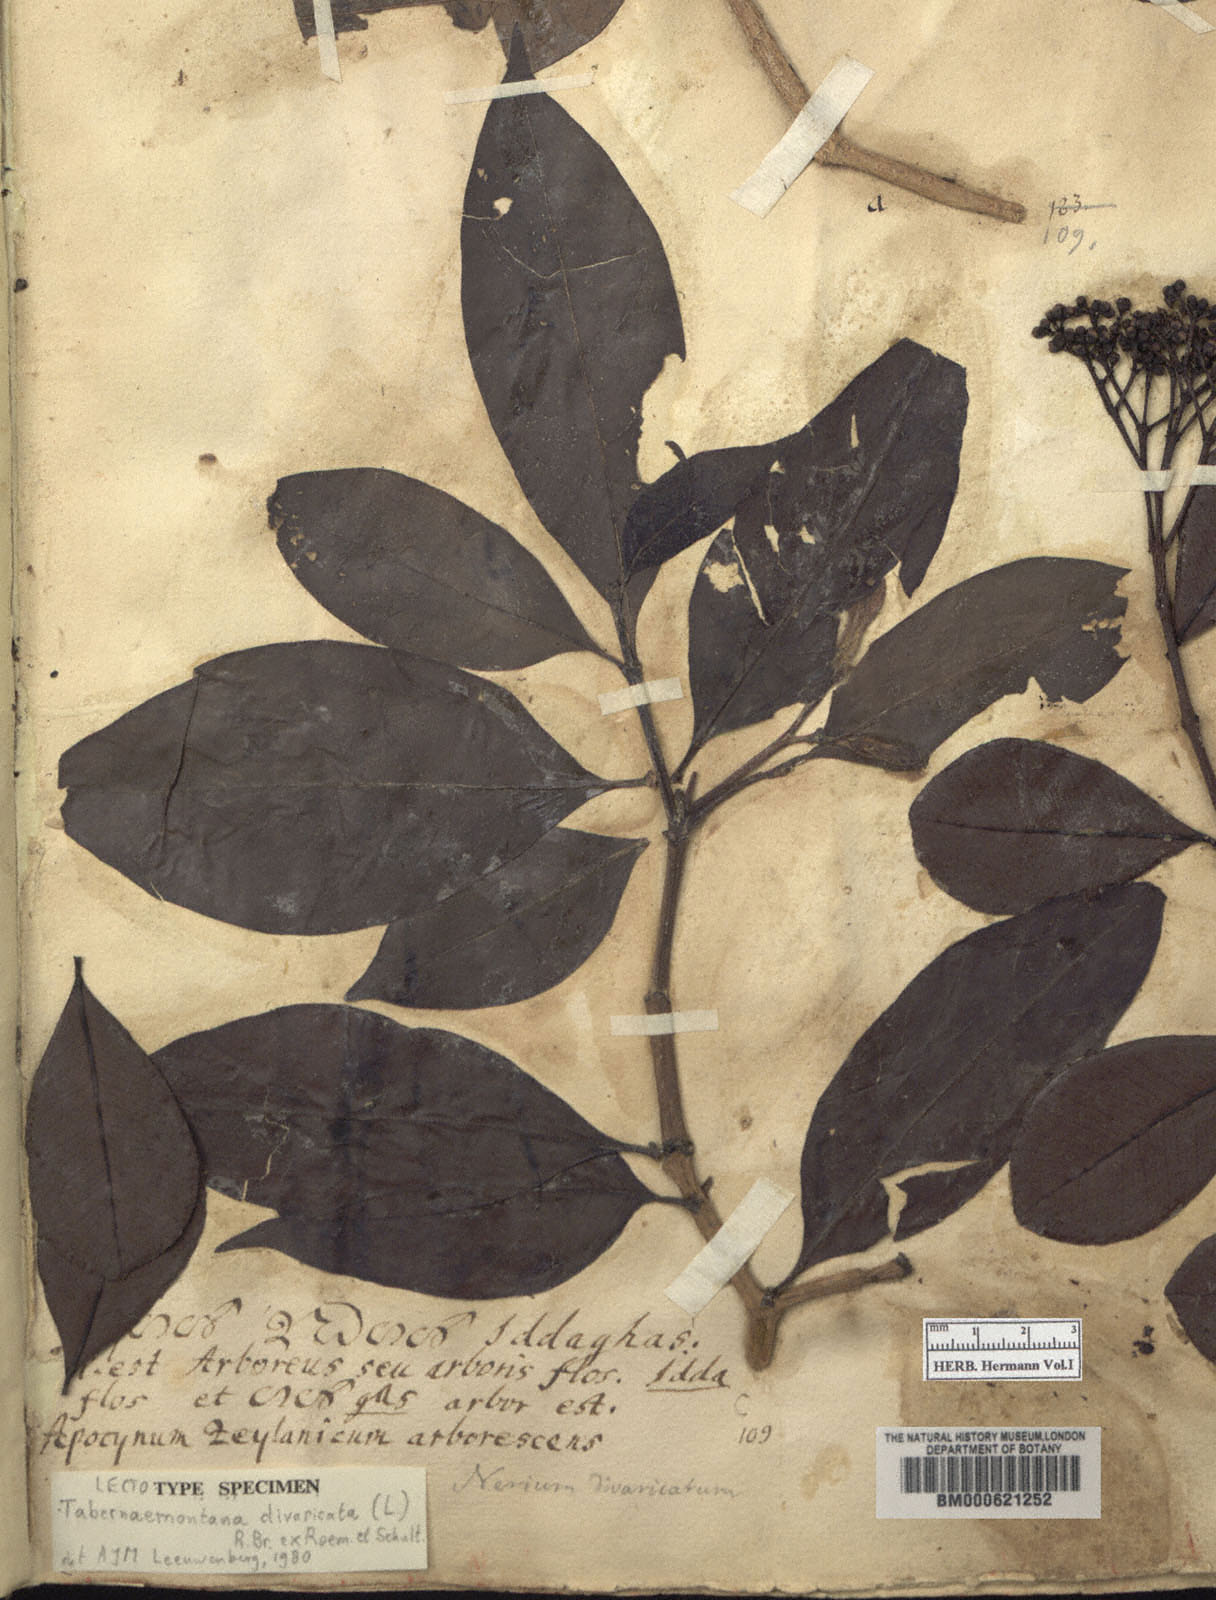 a
183
109.
Iddaghas.
est Arboreus seu arboris flos. Idda
flos et gas arbor est.
Apocynum Zeylanicum arborescens
C
109
Nerium divaricatum
LECTO TYPE SPECIMEN
Tabernaemontana divaricata (L)
R.Br. ex Roem. et Schult.
det AJM Leeuwenberg, 1980
mm 1 2 3
HERB. Hermann Vol.I
THE NATURAL HISTORY MUSEUM, LONDON
DEPARTMENT OF BOTANY
BM000621252